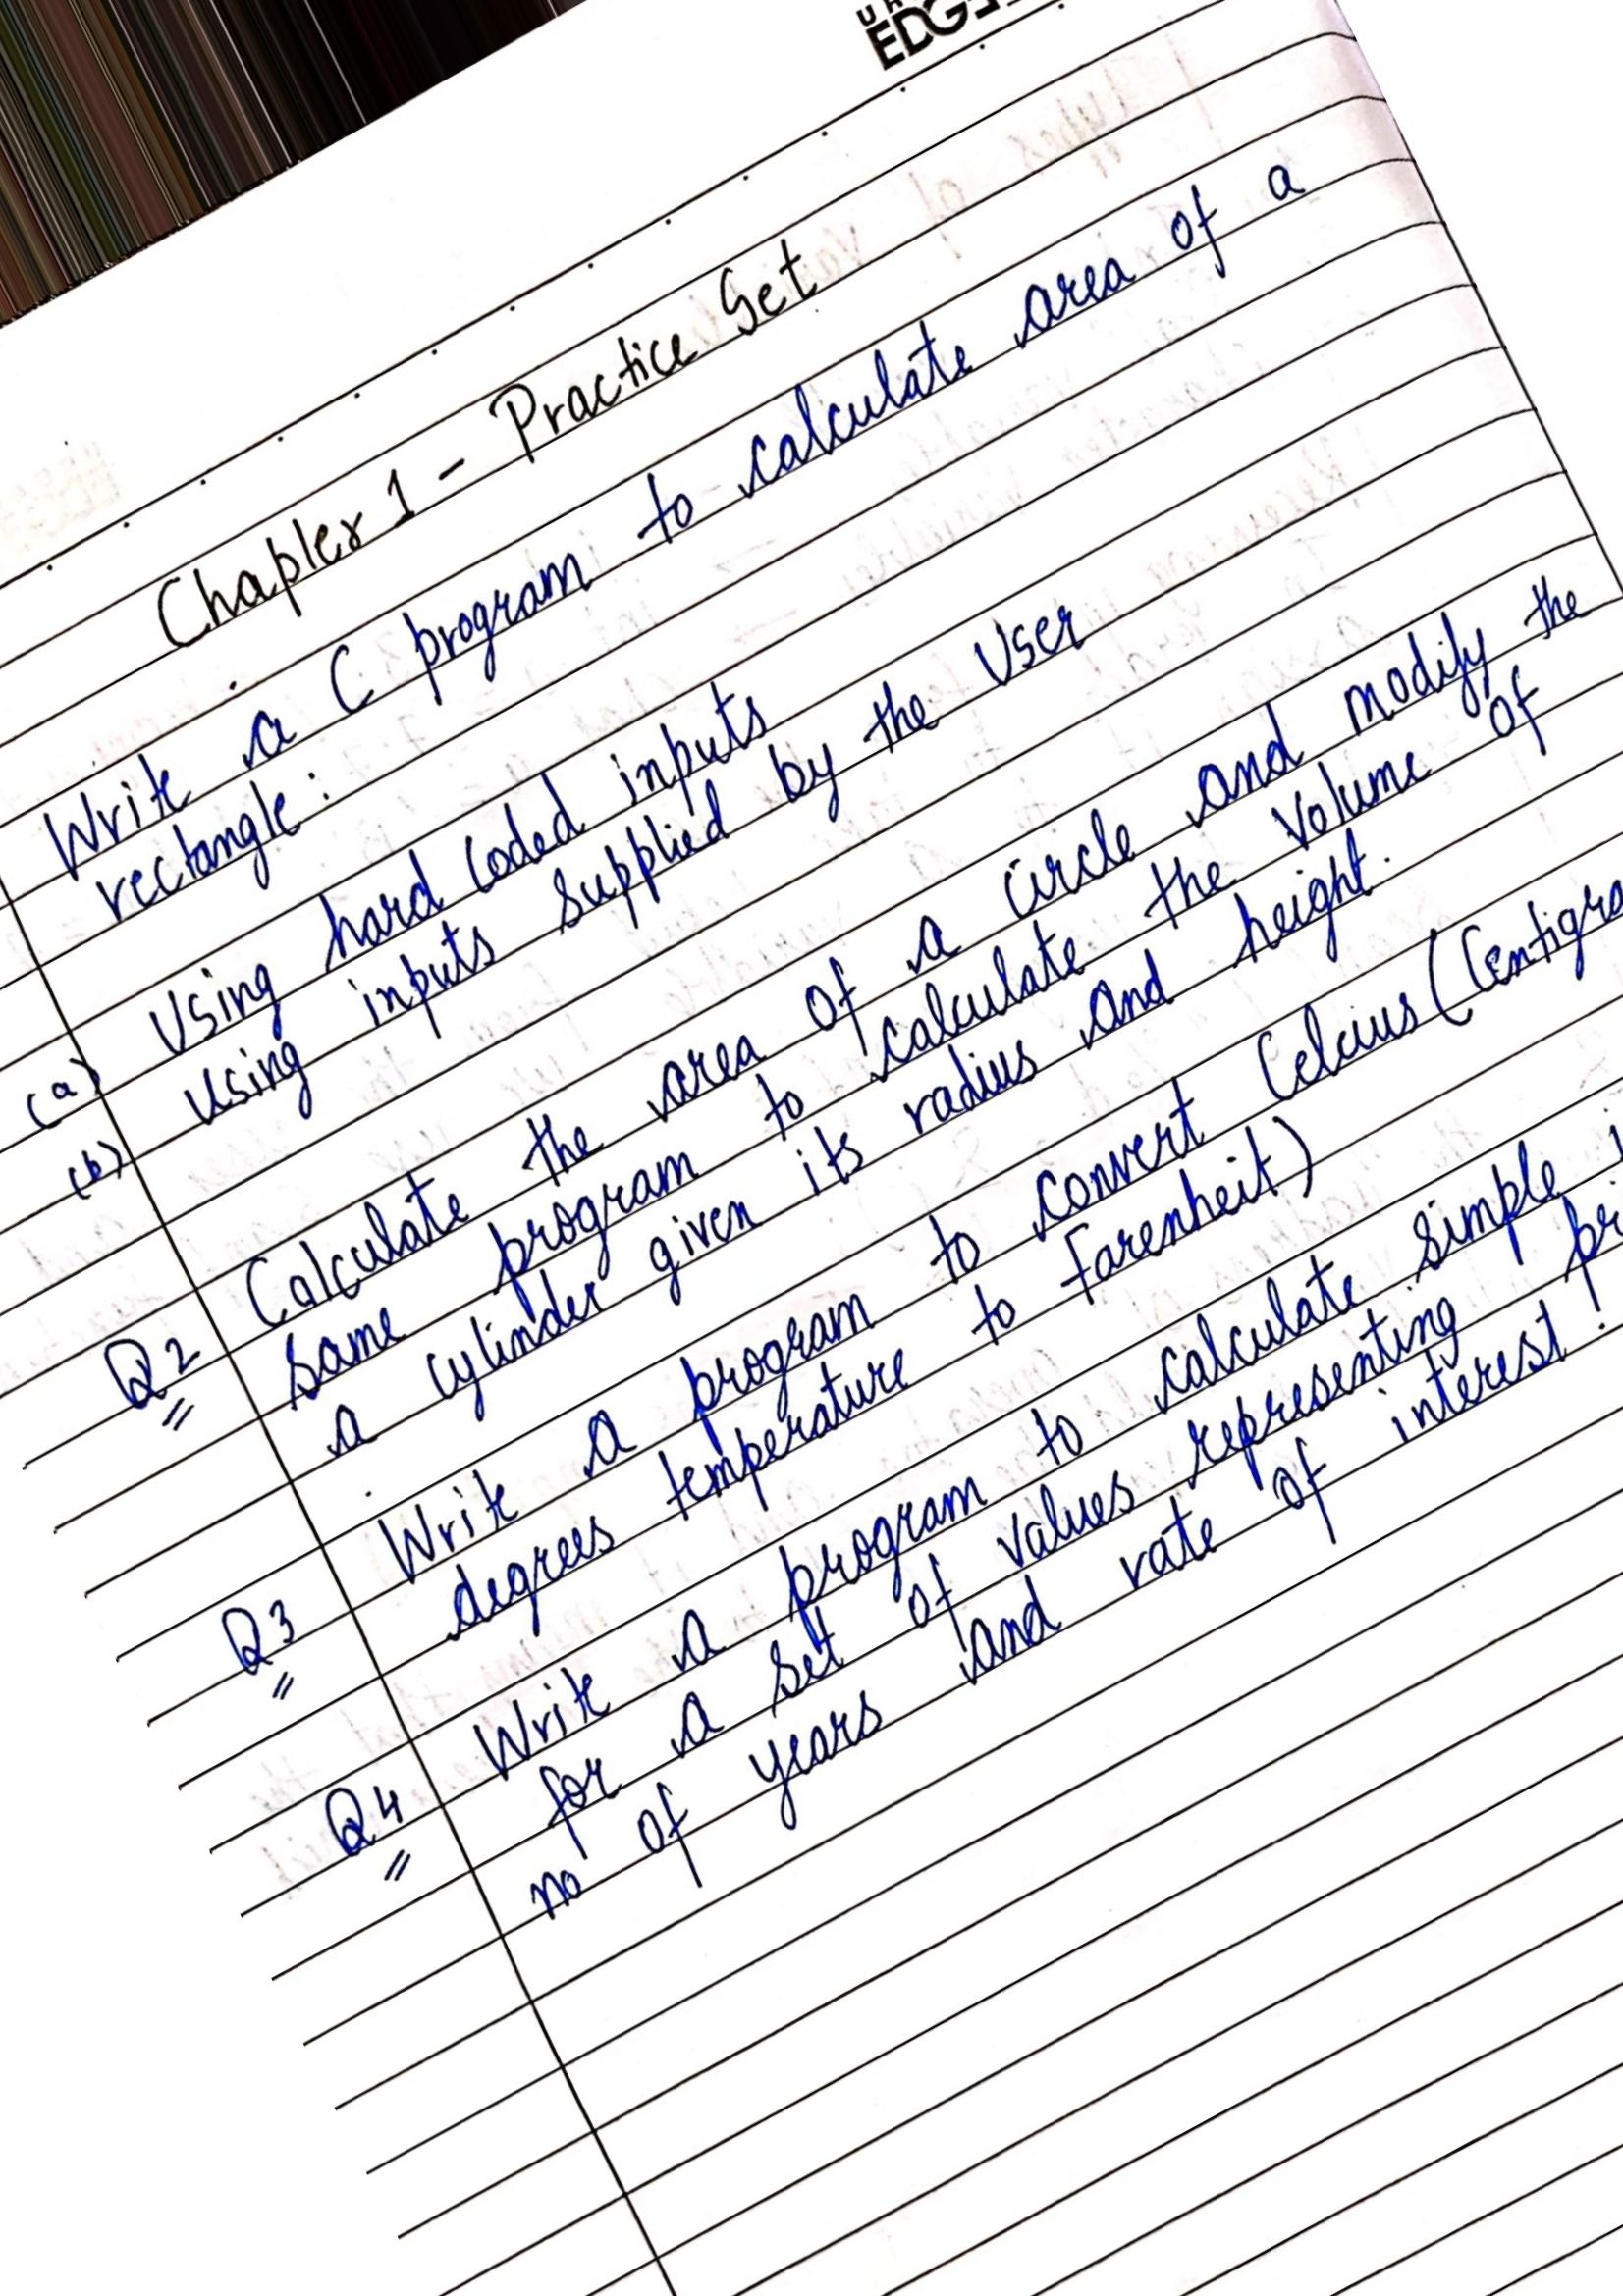 EDGE
Chapler 1 - Practice Set
Write a C program to calculate area of a
rectangle:
(a) Using hard coded inputs
(b) Using inputs supplied by the User
Q2 Calculate the area of a circle and modify the
same program to calculate the volume of
a cylinder given its radius and height.
Q3 Write a program to convert Celcius (Centigra
degrees temperature to Farenheit)
Q4 Write a program to calculate simple
for a set of values representing pri
no of years and rate of interest.